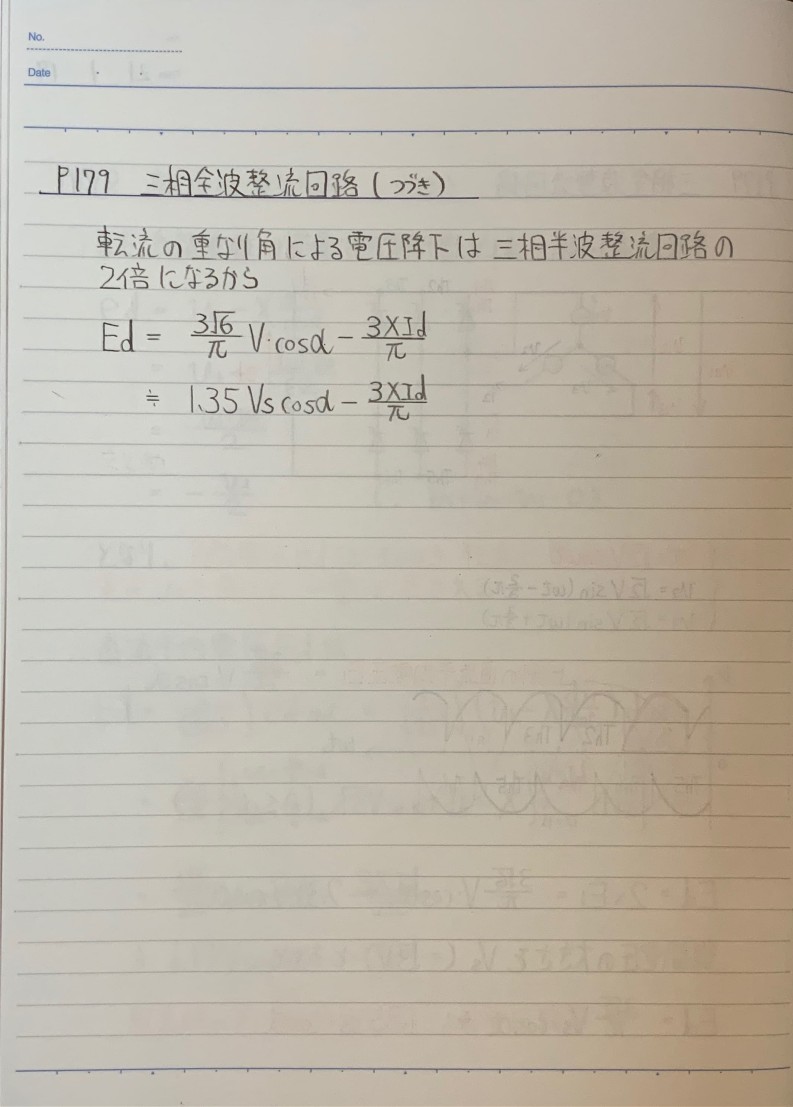 No.
Date
P179 三相全波整流回路(つづき)
転流の重なり角による電圧降下は三相半波整流回路の
2倍になるから
Ed = 3√6/π V·cosα − 3XId/π
≒ 1.35 Vs cosα − 3XId/π